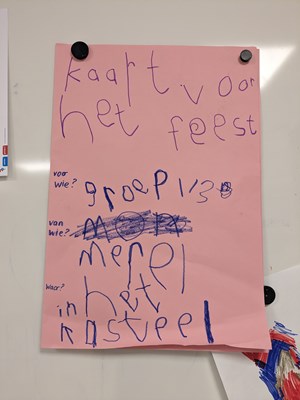 kaart voor
het feest
voor
wie?
groep 1/3
van
wie?
merel
waar?
in het
kasteel